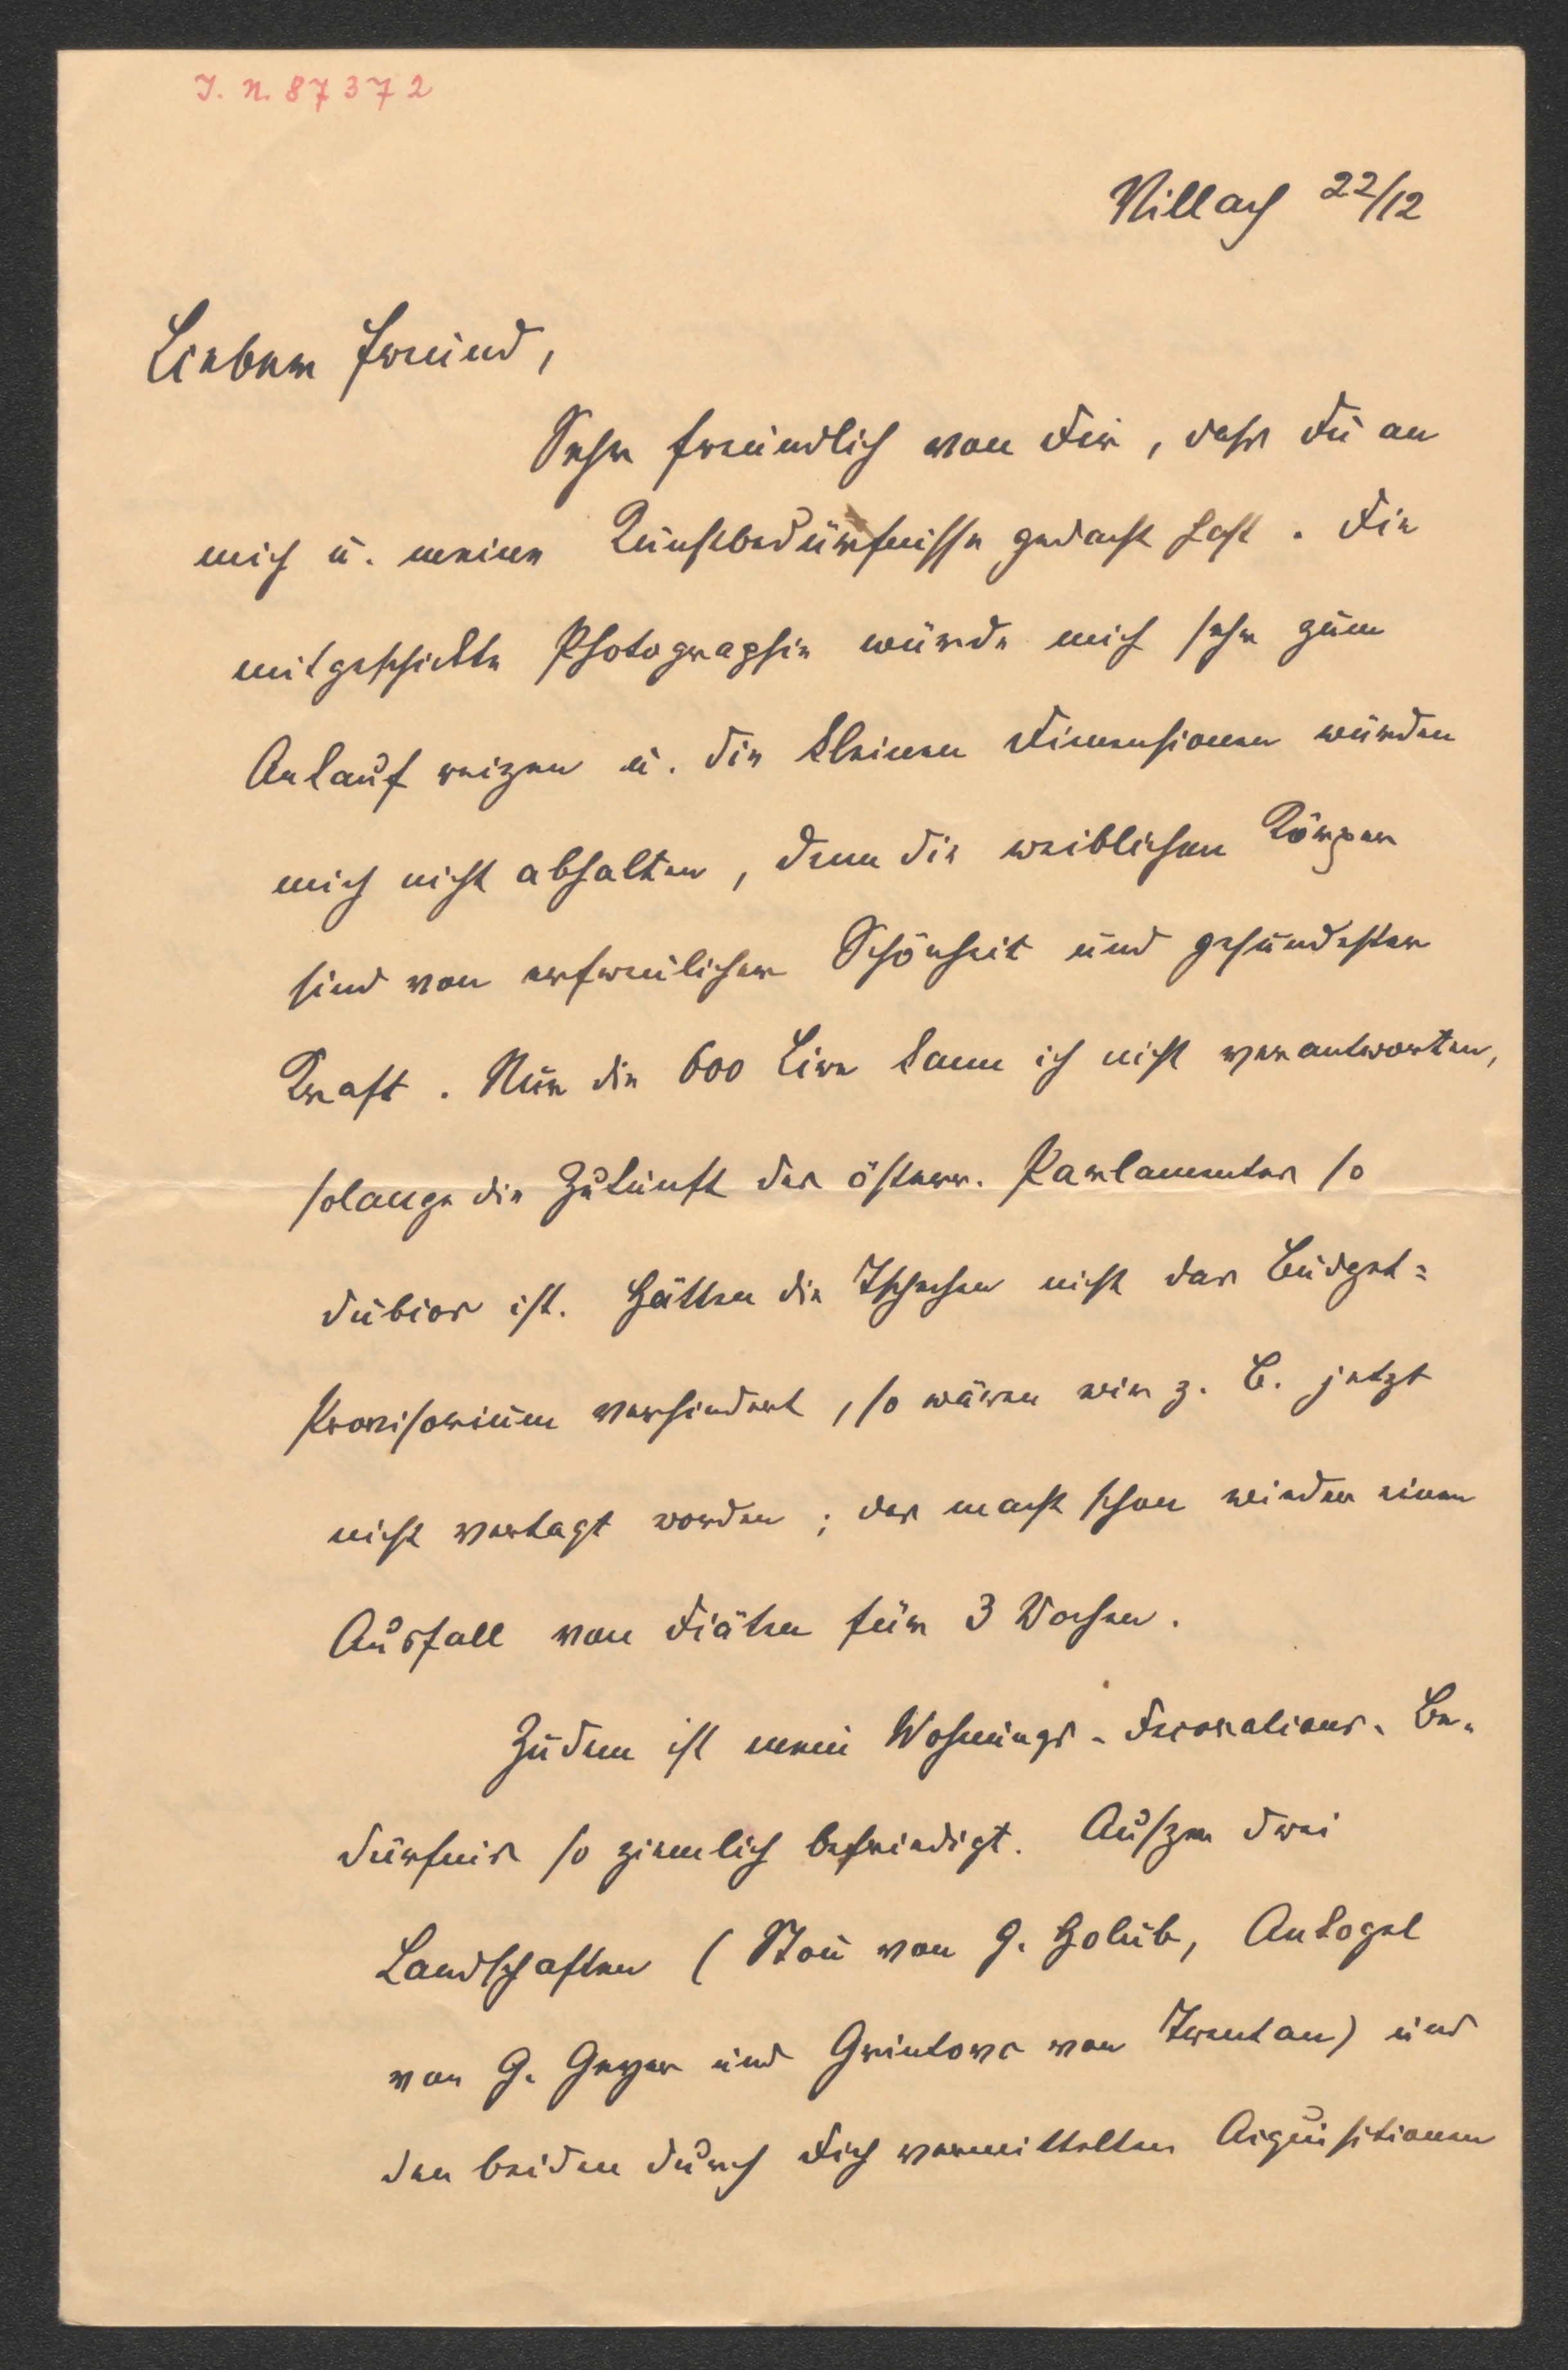 I. N. 87372
Villach 22/12
Lieber Freund,
Sehr freundlich von Dir, dass Du an
mich u. meine Kunstbedürfnisse gedacht hast. Die
mitgeschickte Photographie würde mich sehr zum
Ankauf reizen u. die kleinen Dimensionen würden
mich nicht abhalten, denn die weiblichen Körper
sind von erfreulicher Schönheit und gesundester
Kraft. Nur die 600 Lire kann ich nicht verantworten,
solange die Zukunft des österr. Parlamentes so
dubios ist. Hätten die Tschechen nicht das Budget-
Provisorium verhindert, so wären wir z. B. jetzt
nicht vertagt worden; das macht schon wieder einen
Ausfall von Diäten für 3 Wochen.
Zudem ist mein Wohnungs-Decorations-Be-
dürfnis so ziemlich befriedigt. Außer drei
Landschaften (Stou von G. Holub, Ankogel
von G. Geyer und Grintovc von Trentan) und
den beiden durch Dich vermittelten Acquisitionen